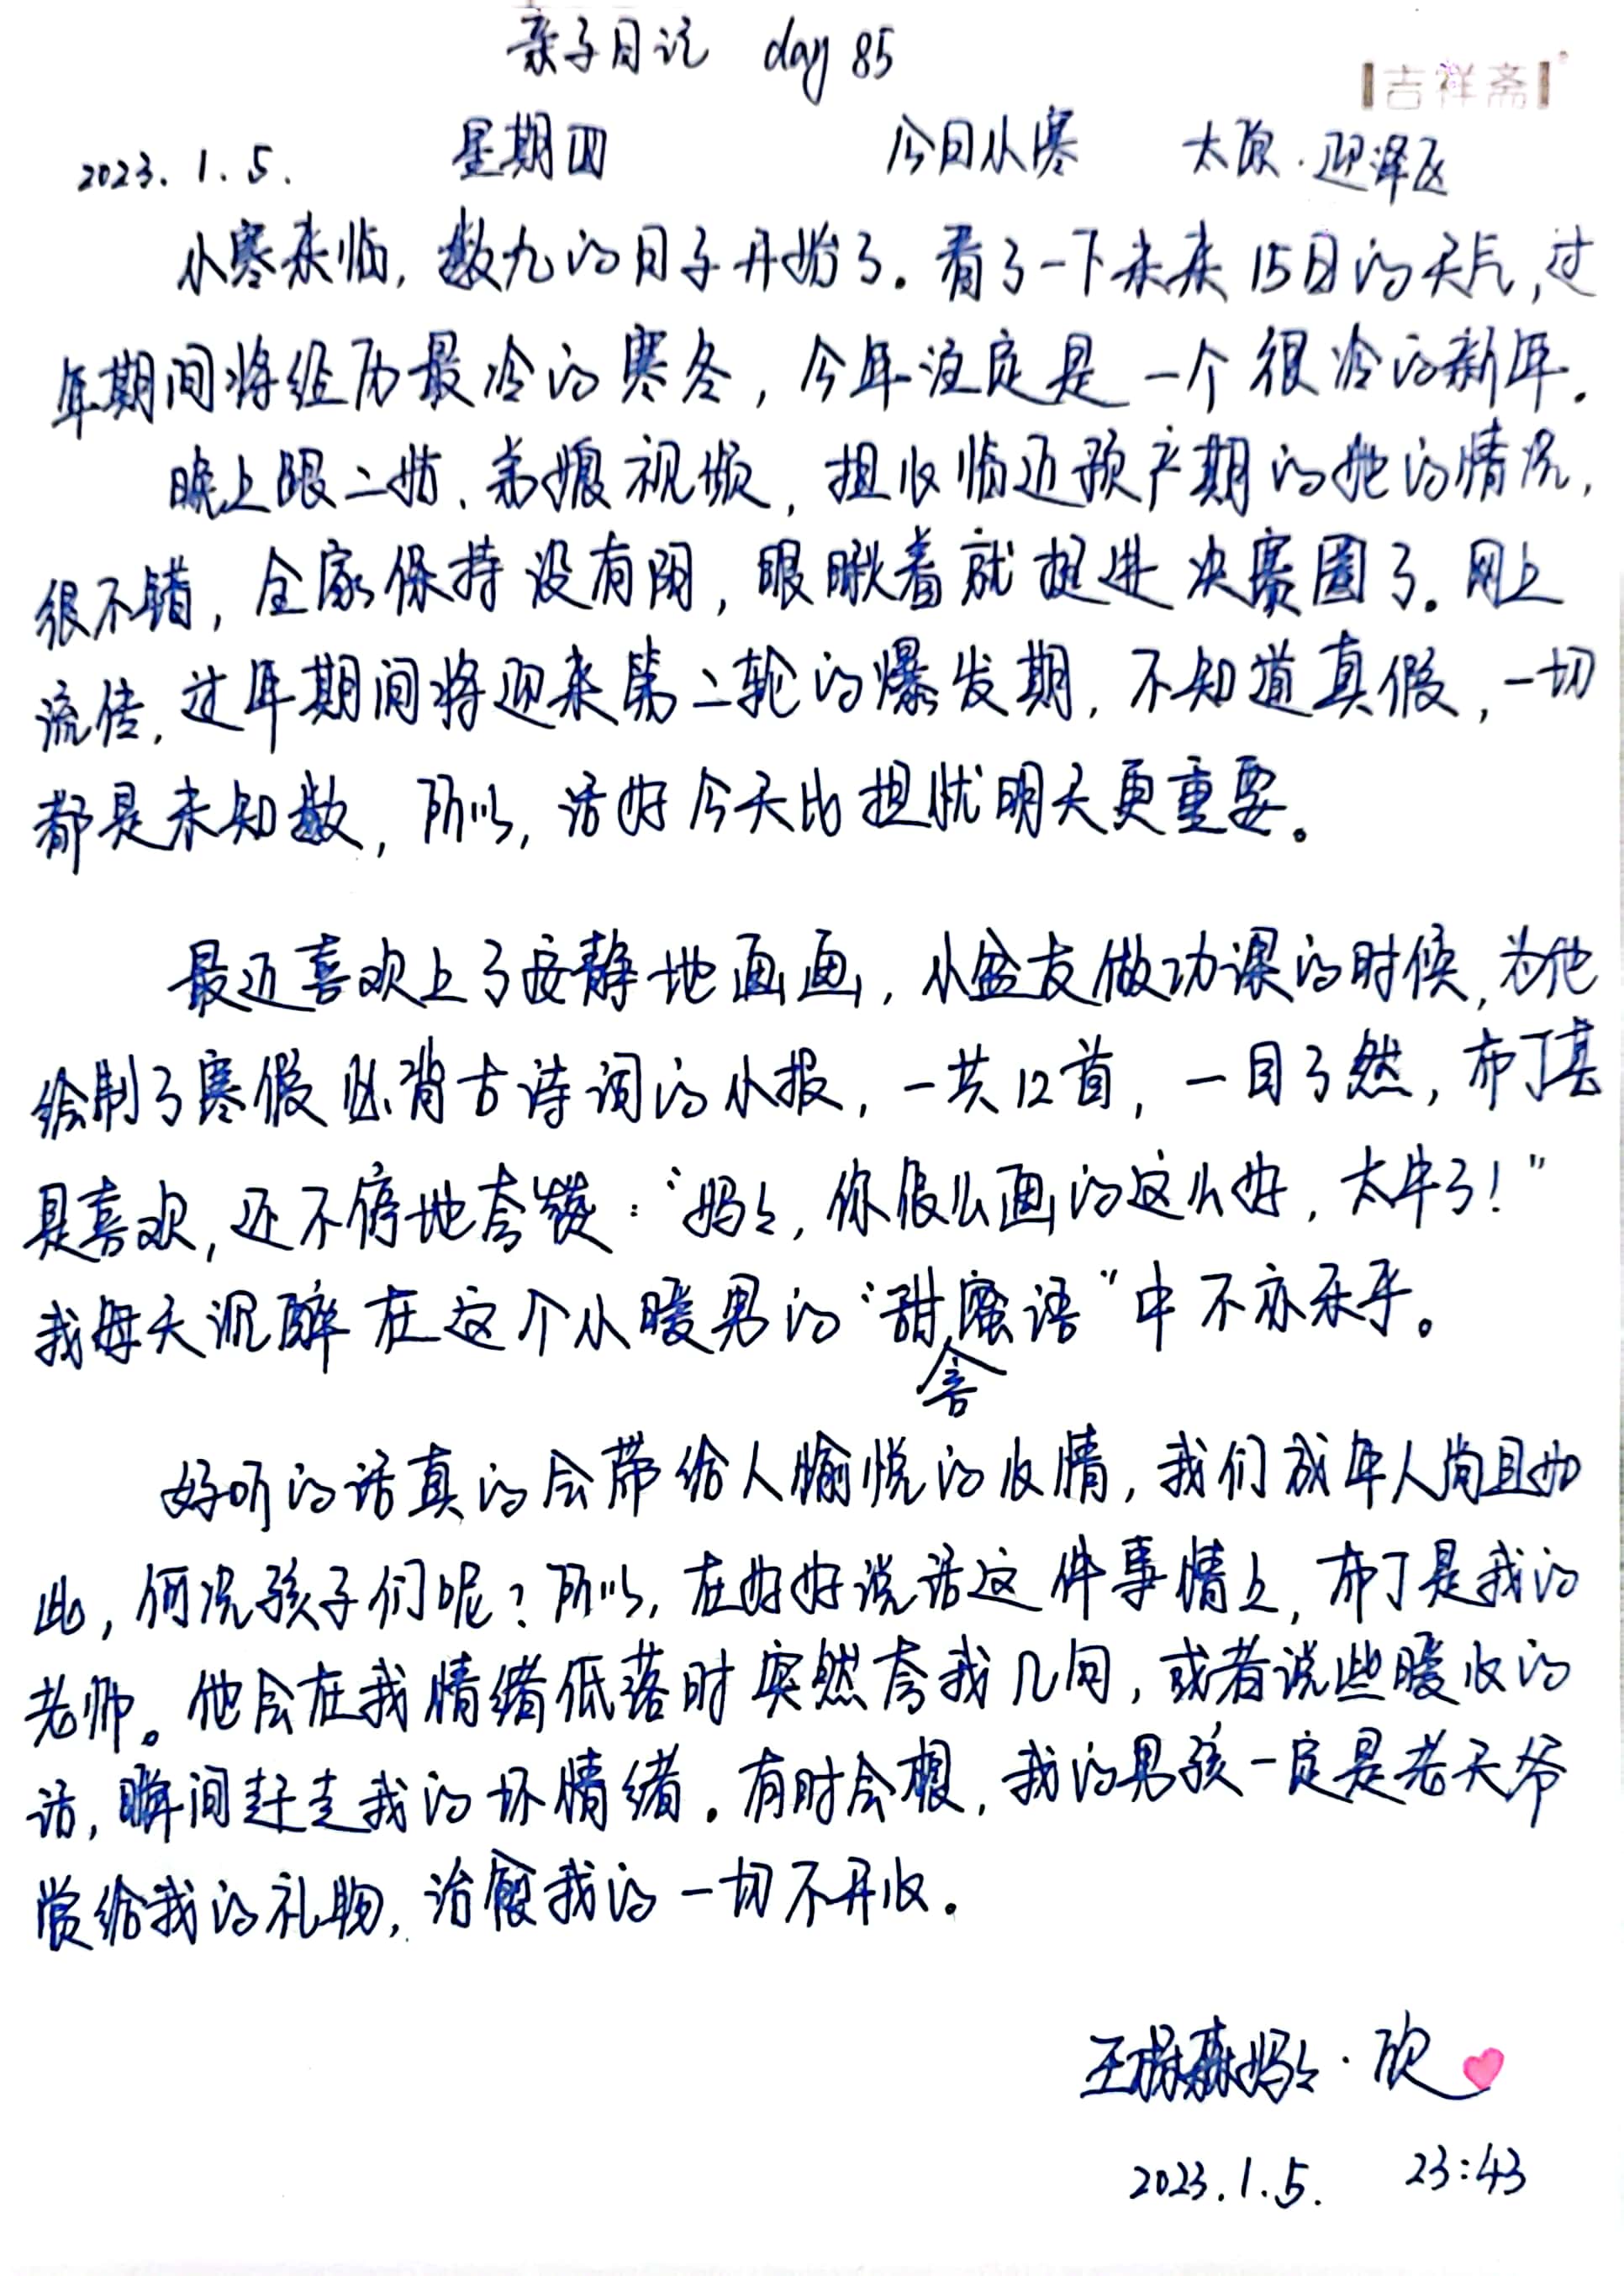 亲子日记 day 85
吉祥斋
2023.1.5. 星期四 今日小寒 太原·迎泽区
小寒来临，数九的日子开始了。看了一下未来15日的天气，过
年期间将经历最冷的寒冬，今年注定是一个很冷的新年。
晚上跟二姑、弟媳视频，担心临近预产期的她的情况，
很不错，全家保持没有阳，眼瞅着就挺进决赛圈了。网上
流传，过年期间将迎来第二轮的爆发期，不知道真假，一切
都是未知数，所以，活好今天比担忧明天更重要。
最近喜欢上了安静地画画，小盆友做功课的时候，为他
绘制了寒假必背古诗词的小报，一共12首，一目了然，布丁甚
是喜欢，还不停地夸赞：“妈妈，你怎么画的这么好，太牛了！”
我每天沉醉在这个小暖男的“甜言蜜语”中不亦乐乎。
好听的话真的会带给人愉悦的心情，我们成年人尚且如
此，何况孩子们呢？所以，在好好说话这件事情上，布丁是我的
老师。他会在我情绪低落时突然夸我几句，或者说些暖心的
话，瞬间赶走我的坏情绪。有时会想，我的男孩一定是老天爷
赏给我的礼物，治愈我的一切不开心。
王梓森妈妈·欣
2023.1.5. 23:43